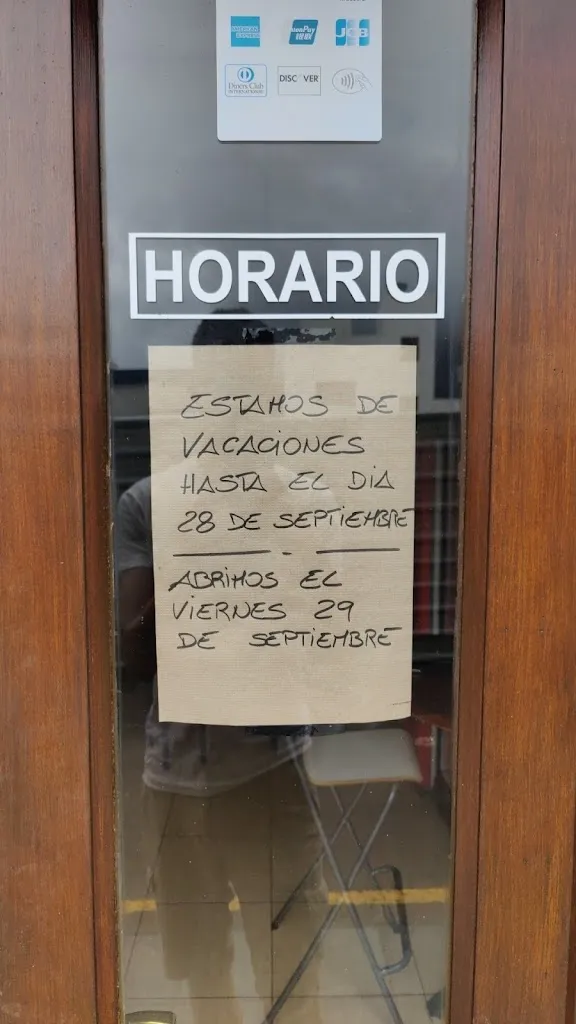 AMERICAN EXPRESS
UnionPay
JCB
Diners Club
INTERNATIONAL
DISCOVER
HORARIO
ESTAMOS DE
VACACIONES
HASTA EL DIA
28 DE SEPTIEMBRE
ABRIMOS EL
VIERNES 29
DE SEPTIEMBRE